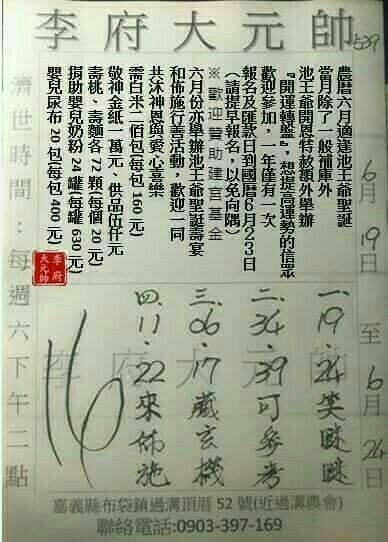 李府大元帥
539
6月19日至6月24日
農曆六月適逢池王爺聖誕
當月除了一般補庫外
池王爺開恩特赦額外舉辦
『開運轉盤』,想提高運勢的信眾
歡迎參加,一年僅有一次
報名及匯款日到國曆6月23日
(請提早報名,以免向隅)
※歡迎贊助建宮基金
六月份亦舉辦池王爺聖誕壽宴
和佈施行善活動,歡迎一同
共沐神恩與愛心喜樂
需白米二佰包(每包160元)
敬神金紙一萬元、供品伍仟元
壽桃、壽麵各72顆(每個20元)
捐助嬰兒奶粉24罐(每罐630元)
嬰兒尿布20包(每包400元)
李府
大元帥
濟世時間:每週六下午二點
李府大元帥
一.19.24笑瞇瞇
二.34.39可參考
三.06.17藏玄機
四.11.22來佈施
16
嘉義縣布袋鎮過溝頂厝52號(近過溝農會)
聯絡電話:0903-397-169